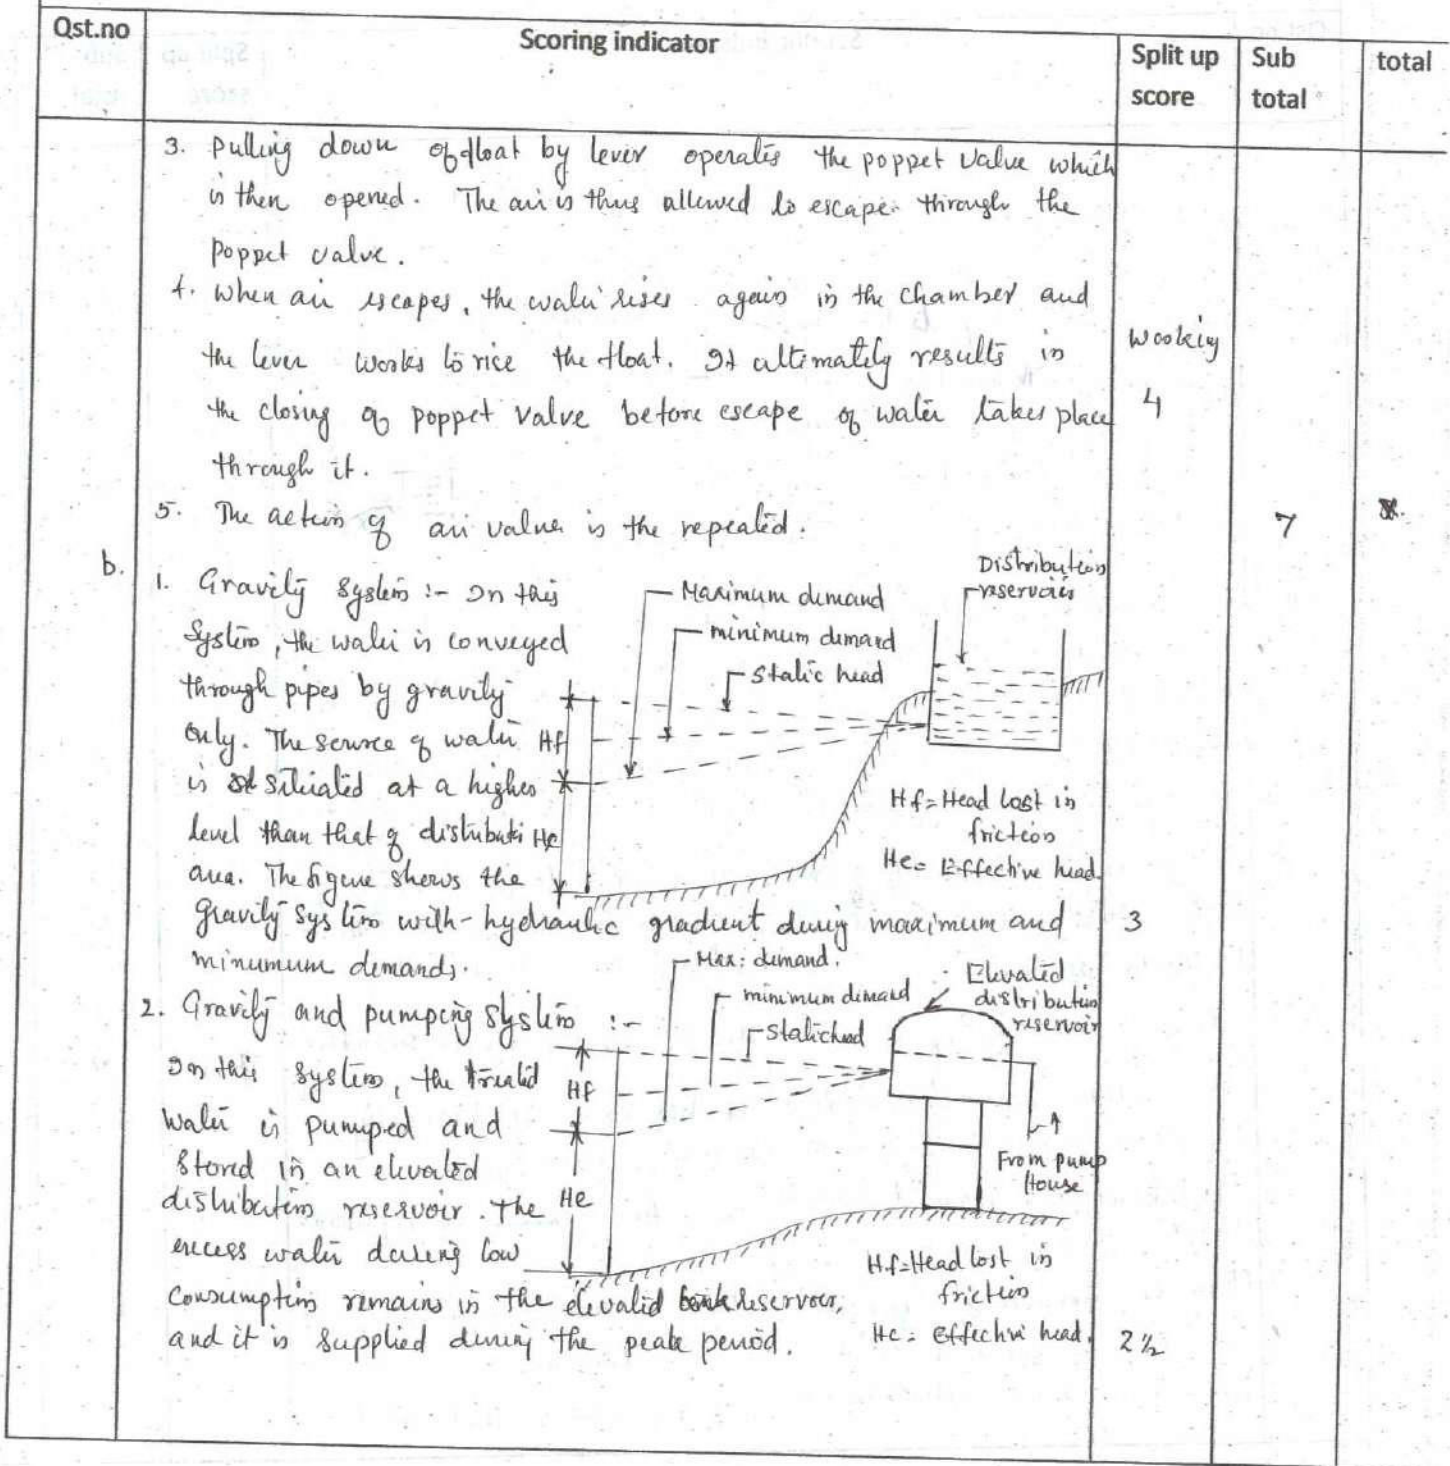 Qst.no Scoring indicator Split up score Sub total total
3. Pulling down of float by lever operates the poppet valve which
is then opened. The air is thus allowed to escape through the
poppet valve.
4. When air escapes, the water rises again in the chamber and
the lever works to rice the float. It altimately results in
the closing of poppet valve before escape of water takes place
through it.
Wooking
4
5. The action of air valve is the repeated.
7
b.
1. Gravity System :- In this
System, the water is conveyed
through pipes by gravity
only. The source of water
is situated at a higher
level than that of distributi
area. The figure shows the
gravity system with hydraulic gradient during maximum and
minumum demands.
Maximum demand
minimum demand
Static head
Distribution
reservoir
Hf
He
Hf = Head lost in
friction
He = Effective head.
3
2. Gravity and pumping System :-
In this System, the treated
water is pumped and
stored in an elevated
distribution reservoir. The
excess water during low
consumption remains in the elevated reservoir,
and it is supplied during the peak period.
Max: demand.
minimum demand
Static head
Elevated
distribution
reservoir
Hf
He
From pump
House
Hf = Head lost in
friction
He = Effective head.
2½